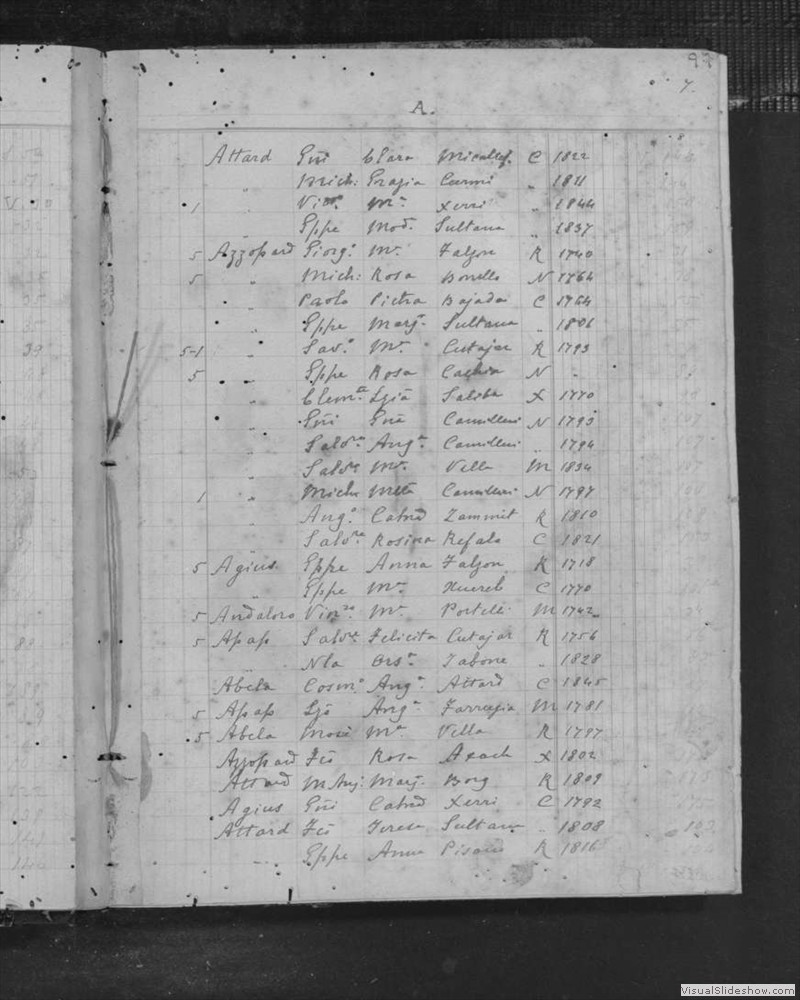 97
7.
A.
Attard Gni Clara Micallef. C 1822
" Mich: Grazia Curmi " 1811
1 " Vic.º Mª Xerri " 1844
" Gppe Mod. Sultana " 1837
5 Azzopard Giorg.º Mª Falzon R 1740
5 " Mich: Rosa Bonello N 1764
" Paolo Pietra Bajada C 1764
" Gppe Marg. Sultana " 1806
5-1 " Sav.º Mª Cutajar R 1793
5 " Gppe Rosa Cachia N -
" Clem.te Lzia Saliba X 1770
" Gni Gna Camilleri N 1793
" Salv.re Ang.ª Camilleri " 1794
" Salv.re Mª Vella M 1834
1 " Mich: Camilleri N 1797
" Ang.º Catnd Zammit R 1810
" Salv.re Rosina Refalo C 1821
5 Agius Gppe Anna Falzon R 1718
" Gppe Mª Xuereb C 1770
5 Andaloro Mª Portelli M 1742
5 Apap Salv.re Felicita Cutajar R 1756
" Nla Ors.ª Tabone " 1828
Abela Cosm.º Ang.ª Attard C 1845
5 Apap Lzo Ang.ª Farrugia M 1781
5 Abela Mª Vella R 1797
Azzopard Fco Rosa Axach X 1802
Attard M Ang: Marg. Borg R 1809
Agius Gni Catnd Xerri C 1792
Attard Fco Teresa Sultana " 1808
" Gppe Anna Pisani R 1816
VisualSlideshow.com